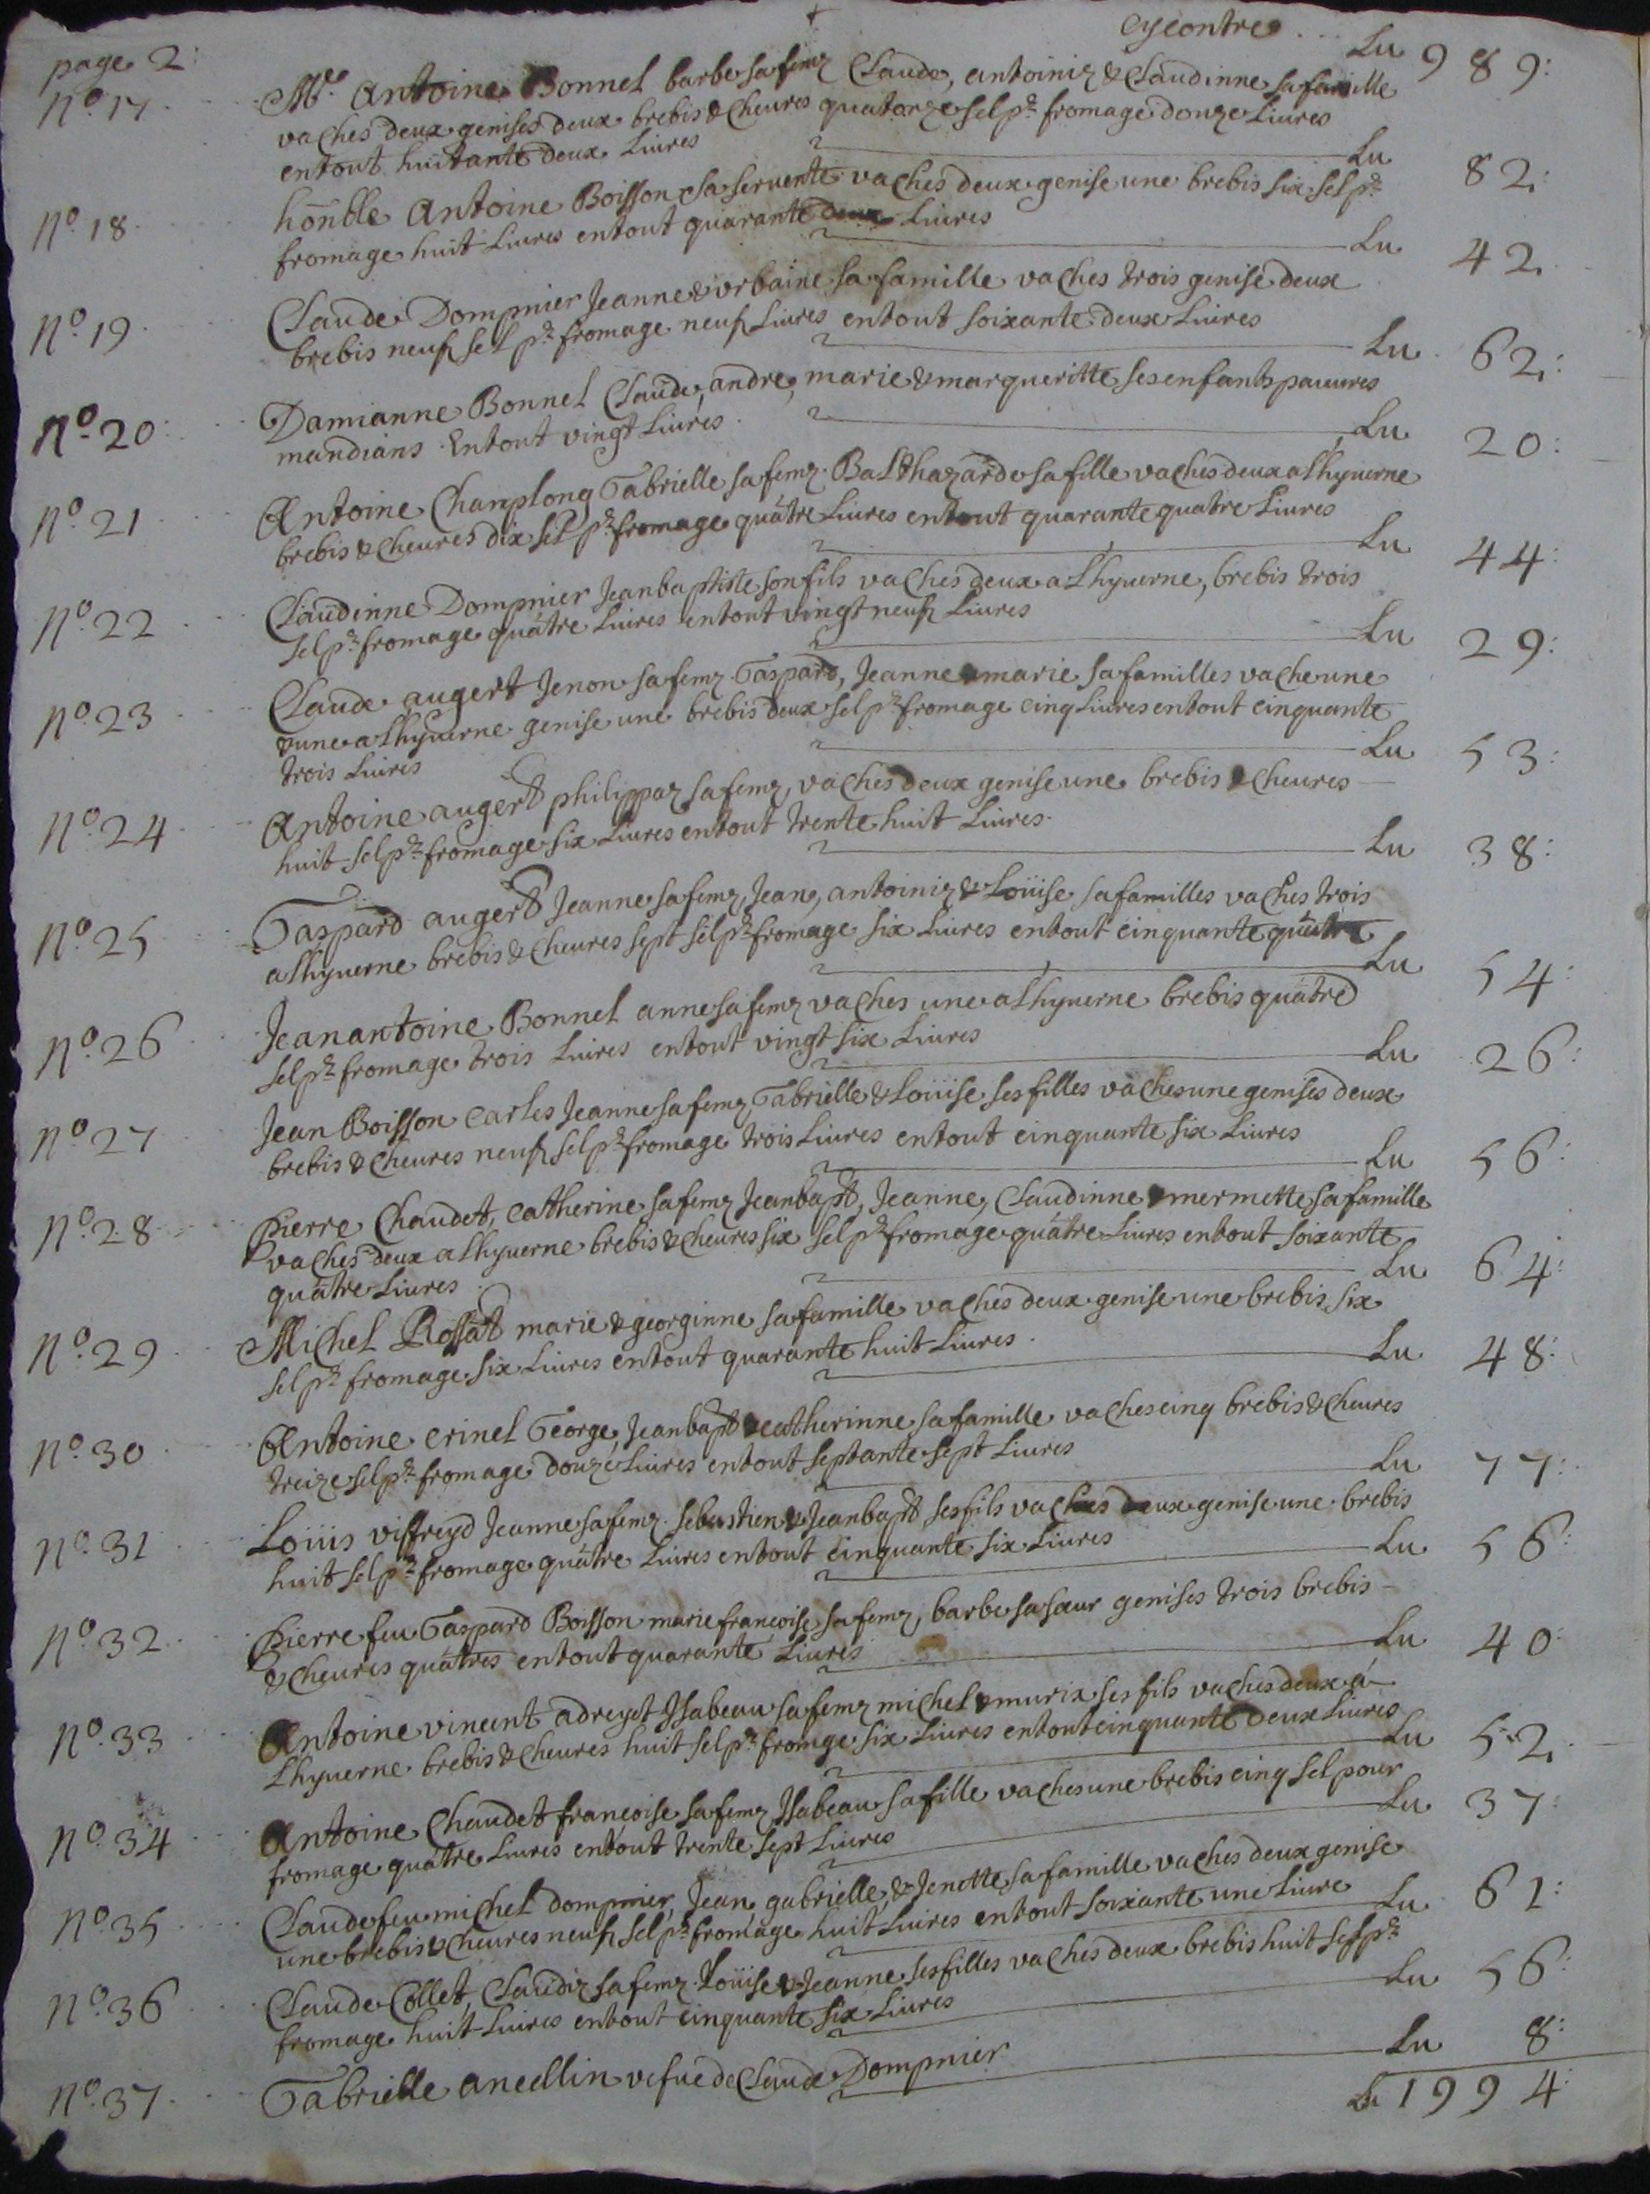 page 2:
cy contre ... Lu 989:
n.º 17 Mre. Antoine Bonnel barbe sa femz Claude, antoiniz & Claudinne sa famille
vaches deux genises deux brebis & cheures quatorze sel pr fromage douze Liures
entout huitante deux Liures Lu 82:
n.º 18 honble Antoine Boisson & sa seruente vaches deux genise une brebis six sel pr
fromage huit Liures entout quarante deux Liures Lu 42.
n.º 19 Claude Dompnier Jeanne & vrbaine sa famille vaches trois genise deux
brebis neuf sel pr fromage neuf Liures entout soixante deux Liures Lu 62:
n.º 20 Damianne Bonnel Claude, andre, marie & margueritte ses enfants pauures
mandians Entout vingt Liures Lu 20:
n.º 21 Antoine Champlong Gabrielle sa femz Balthazarde sa fille vaches deux a lhyuerne
brebis & cheures dix sel pr fromage quatre Liures entout quarante quatre Liures Lu 44:
n.º 22 Claudinne Dompnier Jeanbaptiste son fils vaches deux a Lhyuerne, brebis trois
sel pr fromage quatre Liures entout vingt neuf Liures Lu 29:
n.º 23 Claude augert Jenon sa femz Gaspard, Jeanne & marie sa familles vache une
& une a lhyuerne genise une brebis deux sel pr fromage cinq Liures entout cinquante
trois Liures Lu 53:
n.º 24 Antoine augert philippaz sa femz, vaches deux genise une brebis & cheures
huit sel pr fromage six Liures entout trente huit Liures Lu 38:
n.º 25 Gaspard augert Jeanne sa femz, Jean, antoiniz & Loüise sa familles vaches trois
a lhyuerne brebis & cheures sept sel pr fromage six Liures entout cinquante quatre Lu 54:
n.º 26 Jeanantoine Bonnel anne sa femz vaches une a lhyuerne brebis quatre
sel pr fromage trois Liures entout vingt six Liures Lu 26:
n.º 27 Jean Boisson Carles Jeanne sa femz Gabrielle & Loüise ses filles vaches une genises deux
brebis & cheures neuf sel pr fromage trois Liures entout cinquante six Liures Lu 56:
n.º 28 Pierre Chaudet, Catherine sa femz Jeanbapt, Jeanne, Claudinne & mermette sa famille
vaches deux a lhyuerne brebis & cheures six sel pr fromage quatre Liures entout soixante
quatre Liures Lu 64:
n.º 29 Michel Rossat marie & georginne sa famille vaches deux genise une brebis six
sel pr fromage six Liures entout quarante huit Liures Lu 48:
n.º 30 Antoine Crinel George, Jeanbapt & catherinne sa famille vaches cinq brebis & cheures
treize sel pr fromage douze Liures entout septante sept Liures Lu 77:
n.º 31 Loüis viffreyd Jeanne sa femz sebastien & Jeanbapt ses fils vaches deux genise une brebis
huit sel pr fromage quatre Liures entout cinquante six Liures Lu 56:
n.º 32 Pierre feu Gaspard Boisson marie francoise sa femz, barbe sa sœur genises trois brebis
& cheures quatres entout quarante Liures Lu 40:
n.º 33 Antoine vincent adreyet Isabeau sa femz michel & murix ses fils vaches deux á
Lhyuerne brebis & cheures huit sel pr fromge six Liures entout cinquante deux Liures Lu 52.
n.º 34 Antoine Chaudet françoise sa femz Isabeau sa fille vaches une brebis cinq sel pour
fromage quatre Liures entout trente sept Liures Lu 37:
n.º 35 Claude feu michel dompnier, Jean, gabrielle, & Jenette sa famille vaches deux genise
une brebis & cheures neuf sel pr fromage huit Liures entout soixante une Liure Lu 61:
n.º 36 Claude Collet, Claudiz sa femz Loüise & Jeanne ses filles vaches deux brebis huit sel pr
fromage huit Liures entout cinquante six Liures Lu 56:
n.º 37 Gabrielle ancellin vefue de Claude Dompnier Lu 8:
Lu 1994: